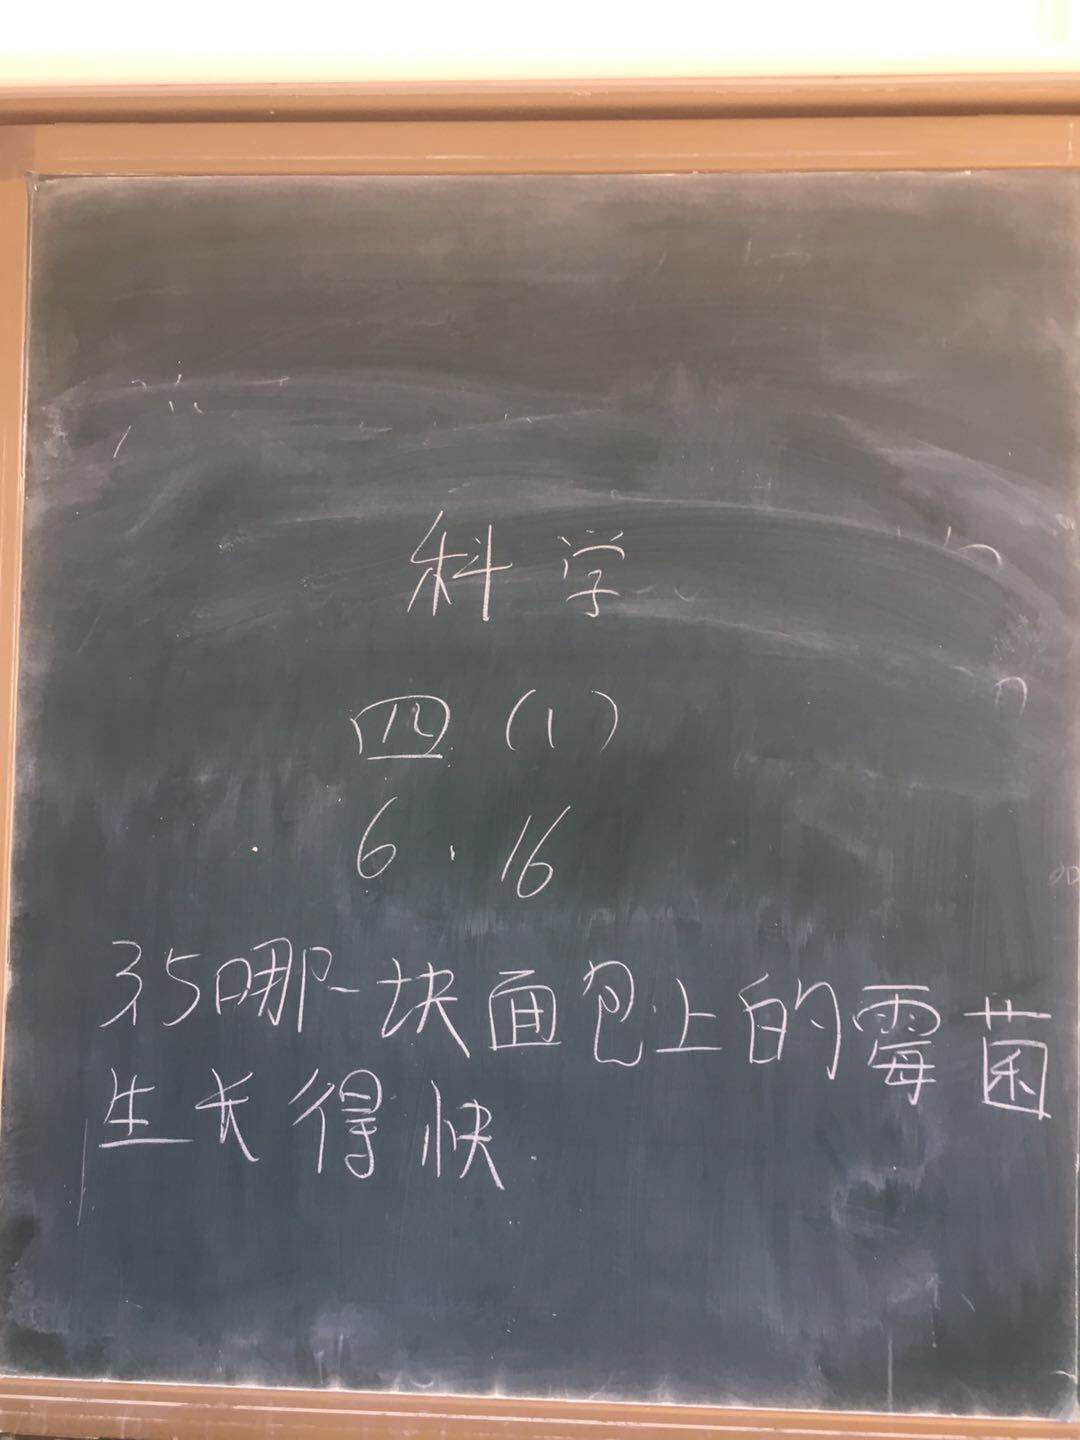 科学
四(1)
6.16
3.5哪一块面包上的霉菌
生长得快